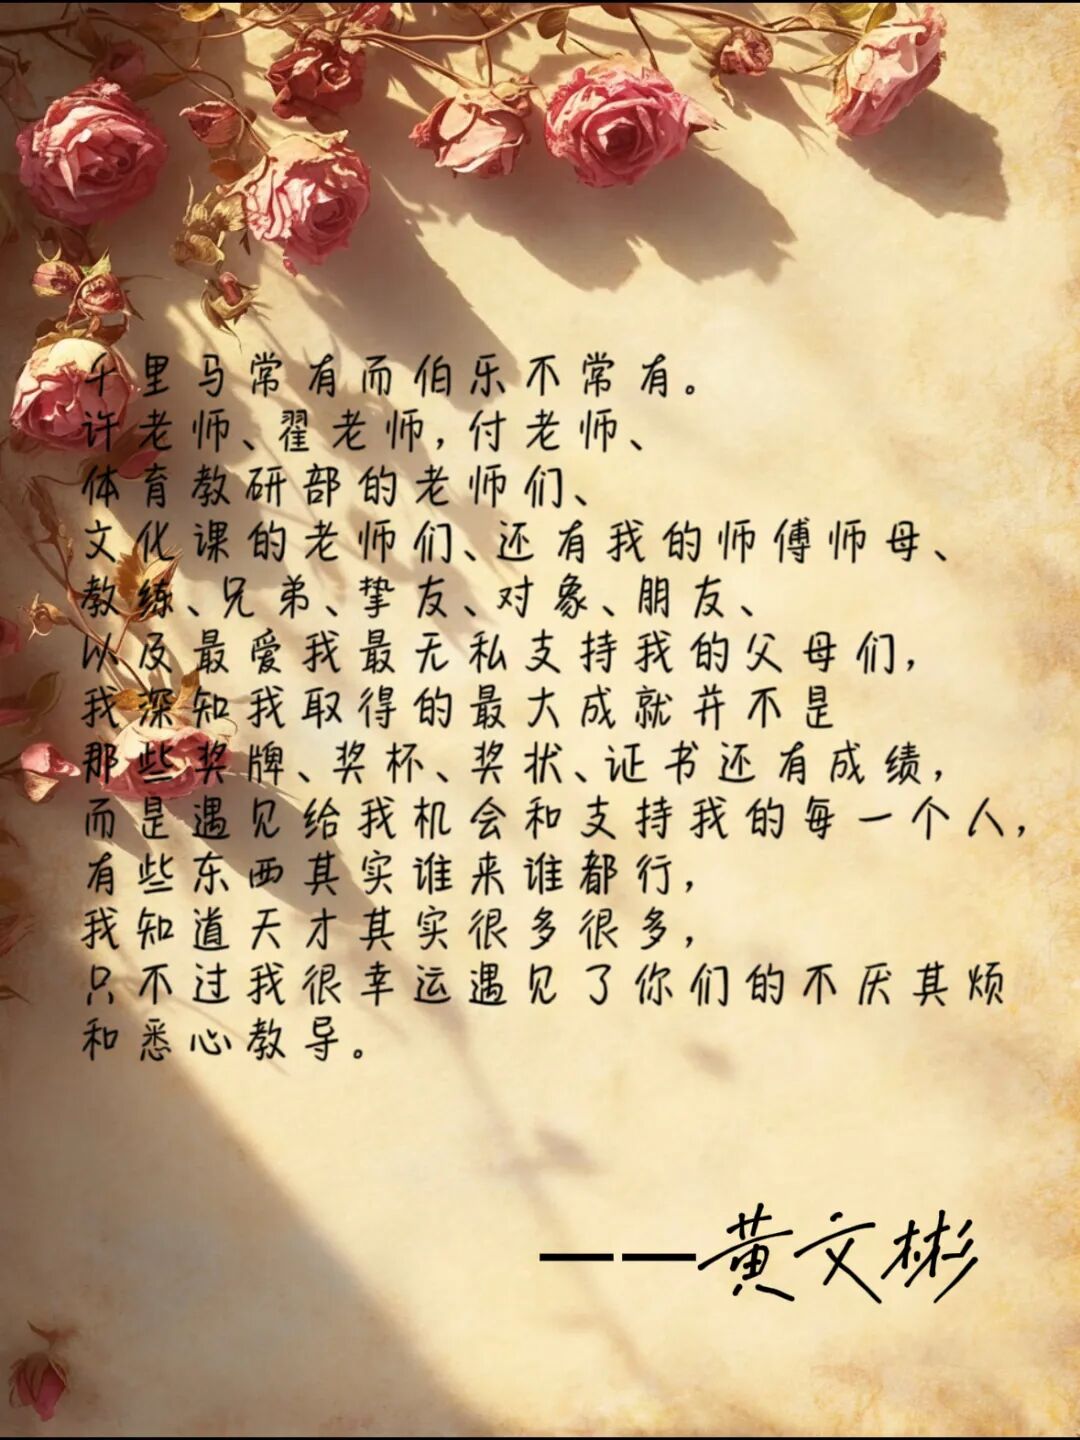 千里马常有而伯乐不常有。
许老师、翟老师,付老师、
体育教研部的老师们、
文化课的老师们、还有我的师傅师母、
教练、兄弟、挚友、对象、朋友、
以及最爱我最无私支持我的父母们,
我深知我取得的最大成就并不是
那些奖牌、奖杯、奖状、证书还有成绩,
而是遇见给我机会和支持我的每一个人,
有些东西其实谁来谁都行,
我知道天才其实很多很多,
只不过我很幸运遇见了你们的不厌其烦
和悉心教导。
——黄文彬